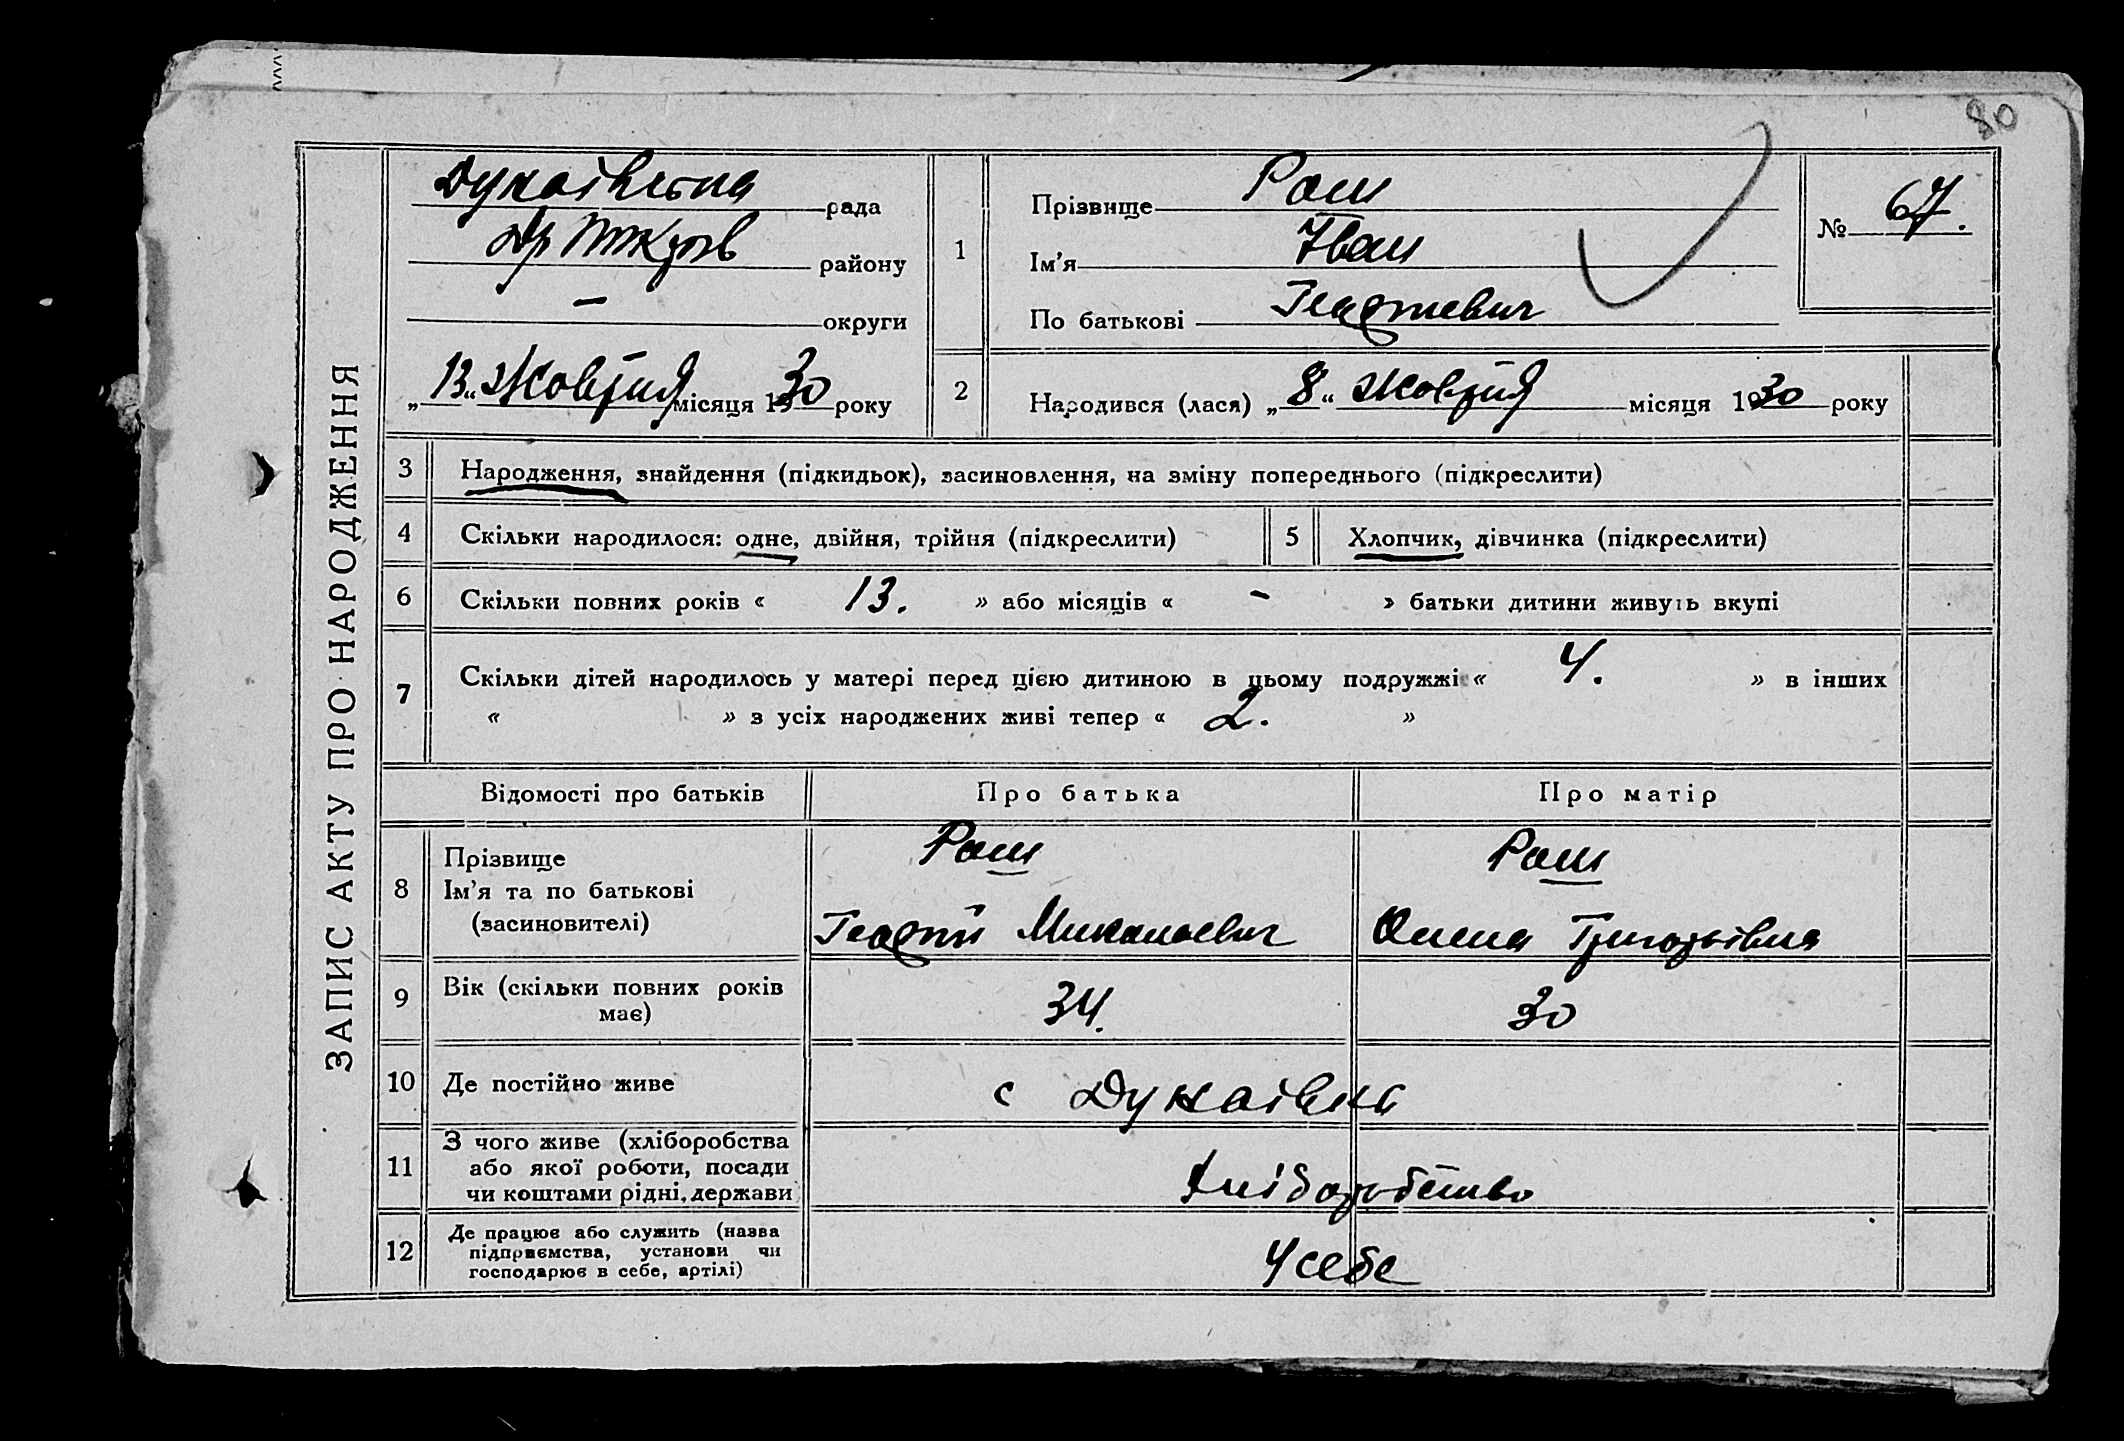 80
ЗАПИС АКТУ ПРО НАРОДЖЕННЯ
Дунаївська рада
району
— округи
„13“ Жовтня місяця 1930 року
1
Прізвище Рош
Ім’я Іван
По батькові Георгіевич
№ 67.
2
Народився (лася) „8“ Жовтня місяця 1930 року
3 Народження, знайдення (підкидьок), засиновлення, на зміну попереднього (підкреслити)
4 Скільки народилося: одне, двійня, трійня (підкреслити)
5 Хлопчик, дівчинка (підкреслити)
6 Скільки повних років « 13. » або місяців « - » батьки дитини живуть вкупі
7 Скільки дітей народилось у матері перед цією дитиною в цьому подружжі « 4. » в інших
« » з усіх народжених живі тепер « 2. »
Відомості про батьків Про батька Про матір
8
Прізвище Рош Рош
Ім’я та по батькові
(засиновителі) Георгій Миколаевич Олена Григорівна
9 Вік (скільки повних років
має) 34. 30
10 Де постійно живе с Дунаівка
11 З чого живе (хліборобства
або якої роботи, посади
чи коштами рідні, держави Хліборобство
12 Де працює або служить (назва
підприємства, установи чи
господарює в себе, артілі) У себе